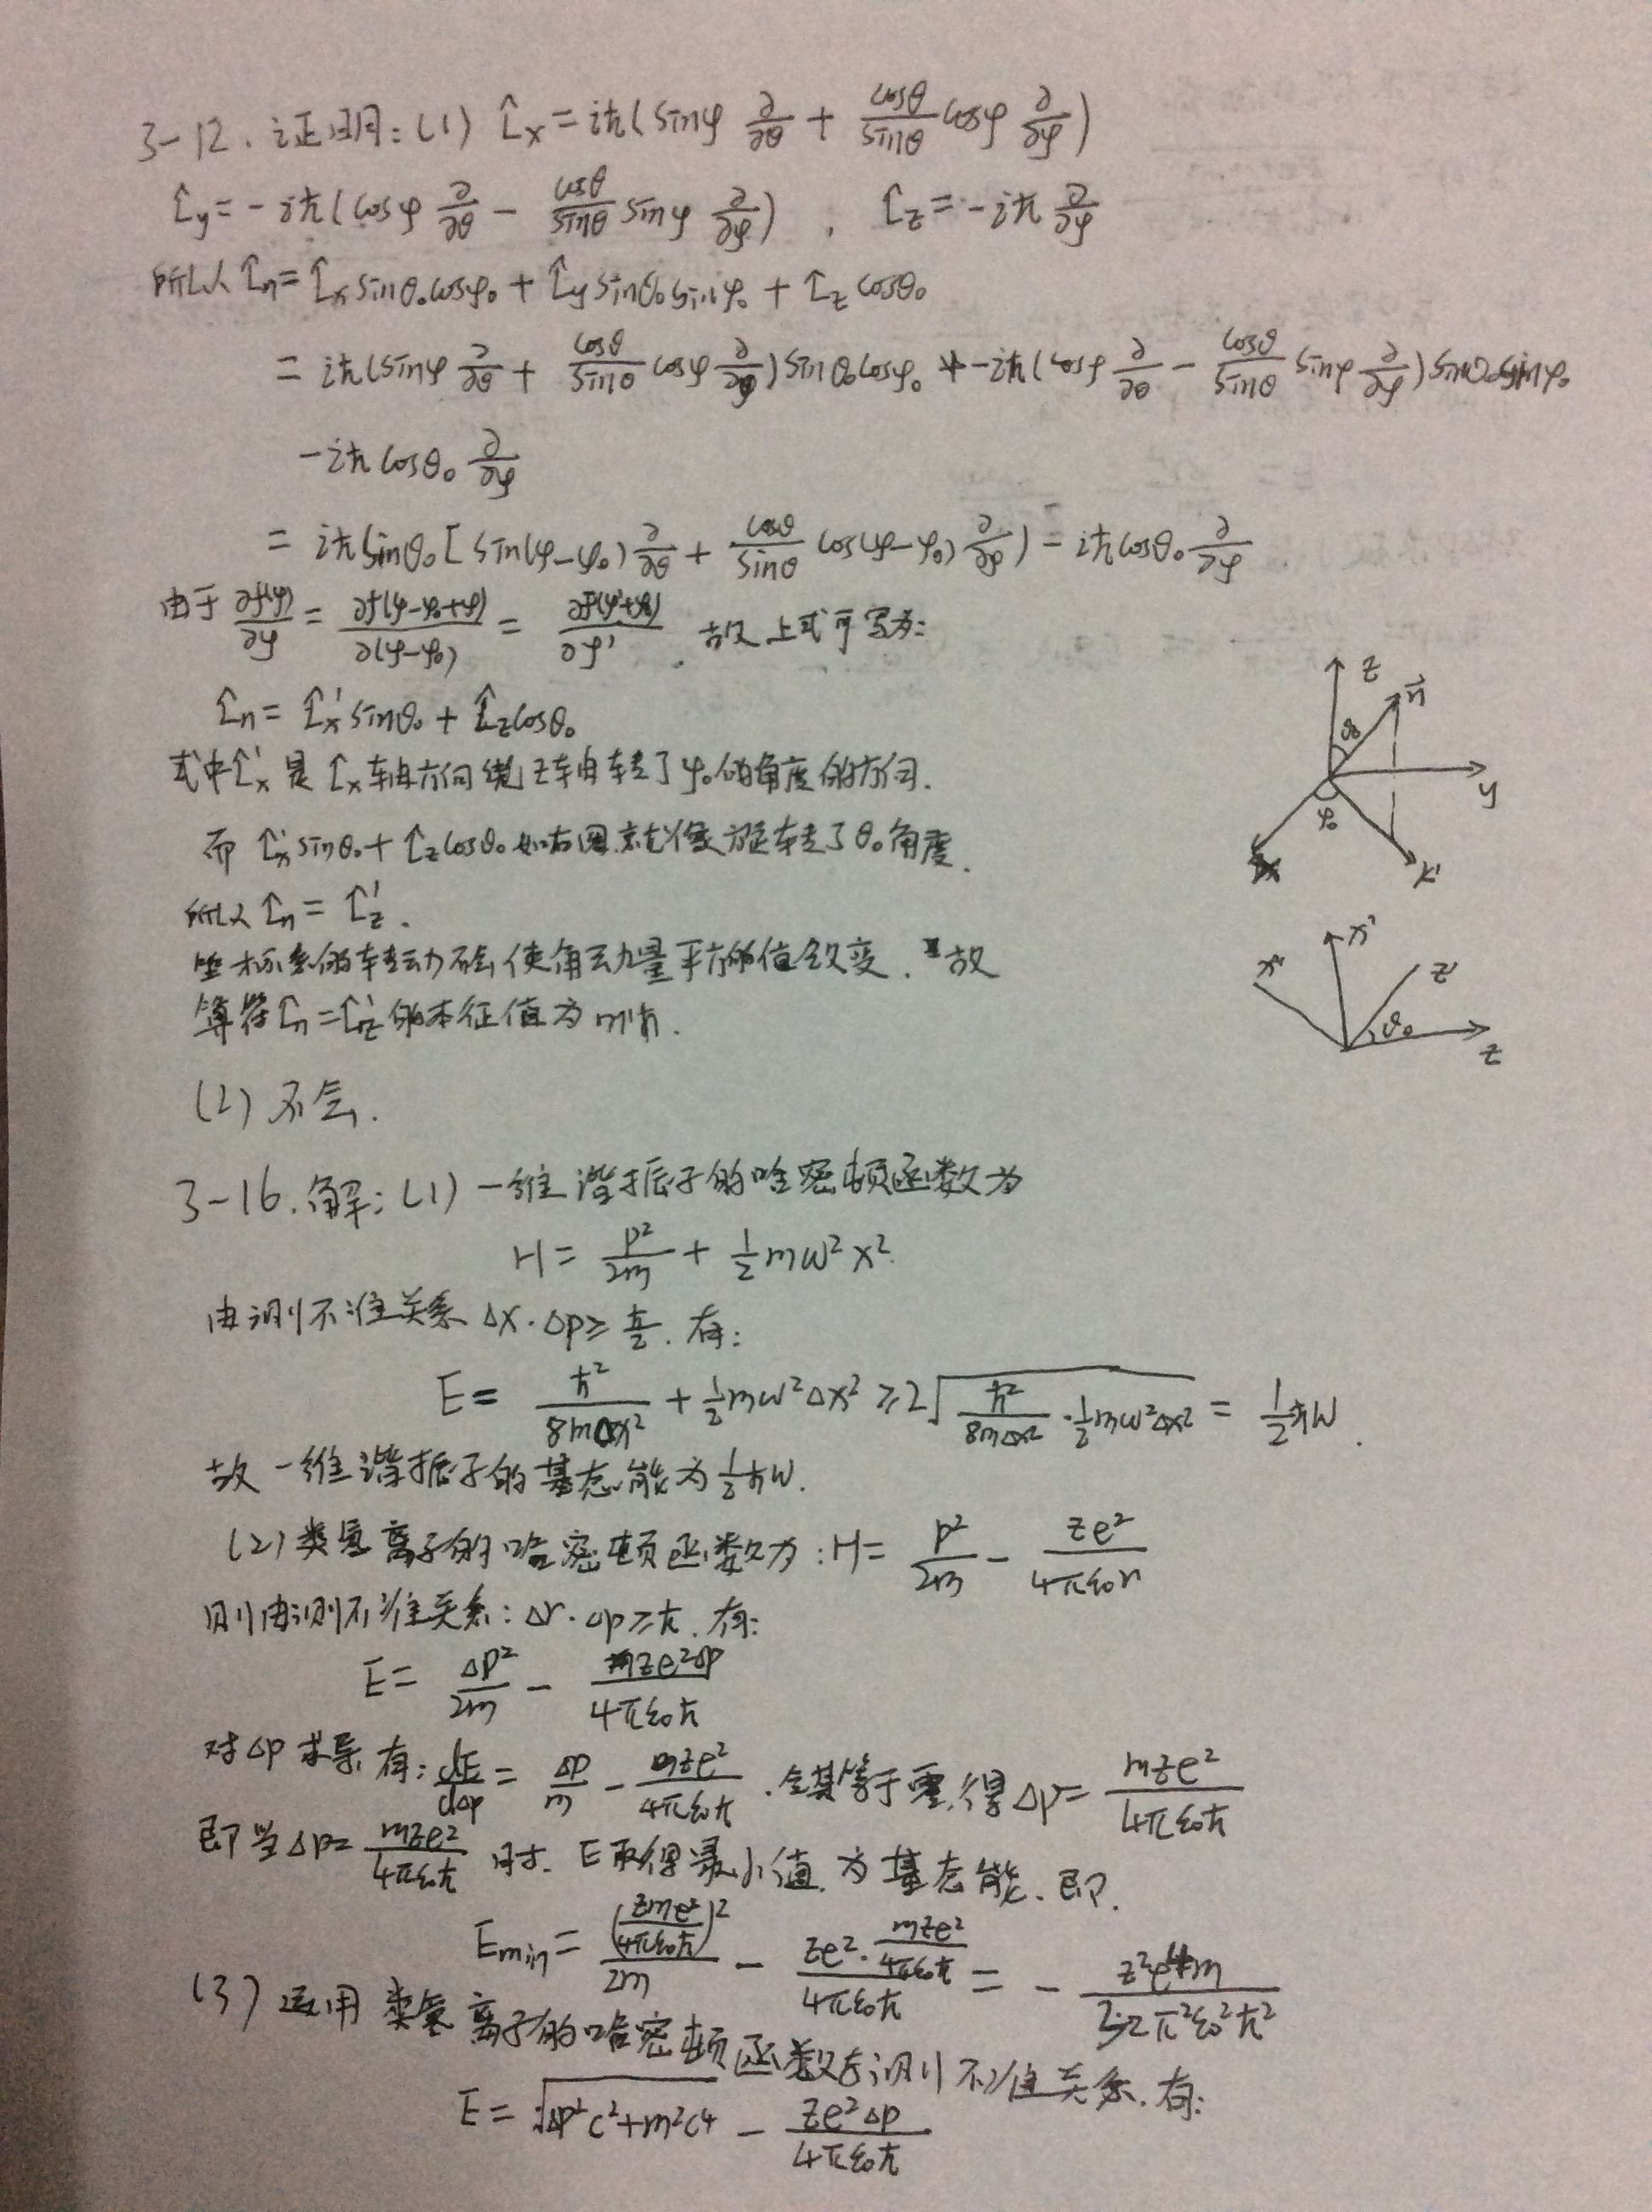 3-12. 证明: (1) L̂x = iħ(sinφ ∂/∂θ + cosθ/sinθ cosφ ∂/∂φ)
L̂y = -iħ(cosφ ∂/∂θ - cosθ/sinθ sinφ ∂/∂φ) , L̂z = -iħ ∂/∂φ
所以 L̂n = L̂x sinθ₀cosφ₀ + L̂y sinθ₀sinφ₀ + L̂z cosθ₀
= iħ(sinφ ∂/∂θ + cosθ/sinθ cosφ ∂/∂φ) sinθ₀cosφ₀ + -iħ(cosφ ∂/∂θ - cosθ/sinθ sinφ ∂/∂φ) sinθ₀sinφ₀
-iħ cosθ₀ ∂/∂φ
= iħ sinθ₀[sin(φ-φ₀) ∂/∂θ + cosθ/sinθ cos(φ-φ₀) ∂/∂φ) - iħ cosθ₀ ∂/∂φ
由于 ∂f(φ)/∂φ = ∂f(φ-φ₀+φ)/∂(φ-φ₀) = ∂f(φ'+φ₀)/∂φ' . 故上式可写为:
L̂n = L̂x' sinθ₀ + L̂z cosθ₀
式中 L̂x' 是 L̂x 轴方向绕z轴转了φ₀的角度的方向.
而 L̂x' sinθ₀ + L̂z cosθ₀ 如右图就像旋转了θ₀角度.
所以 L̂n = L̂z' .
坐标系的转动不会使角动量平方的值改变. 故
算符 L̂n = L̂z' 的本征值为 m'ħ.
z
n⃗
θ₀
y
φ₀
x
x'
x'
x''
z'
θ₀
z
(2) 不会.
3-16. 解: (1) 一维谐振子的哈密顿函数为
H = p²/2m + 1/2 mω²x²
由测不准关系 Δx·Δp ≥ ħ/2 . 有:
E = ħ²/8mΔx² + 1/2 mω²Δx² ≥ 2√(ħ²/8mΔx² · 1/2 mω²Δx²) = 1/2 ħω .
故一维谐振子的基态能为 1/2 ħω.
(2) 类氢离子的哈密顿函数为: H = p²/2m - ze²/4πε₀r
则由测不准关系: Δr·Δp ≥ ħ. 有:
E = Δp²/2m - ze²Δp/4πε₀ħ
对Δp求导有: dE/dΔp = Δp/m - mze²/4πε₀ħ . 令其等于零, 得 Δp = mze²/4πε₀ħ
即当 Δp = mze²/4πε₀ħ 时. E取得最小值. 为基态能. 即.
Emin = (zme²/4πε₀ħ)²/2m - ze²·mze²/4πε₀ħ/4πε₀ħ = - z²e⁴m/32π²ε₀²ħ²
(3) 运用类氢离子的哈密顿函数与测不准关系. 有:
E = √Δp²c²+m²c⁴ - ze²Δp/4πε₀ħ